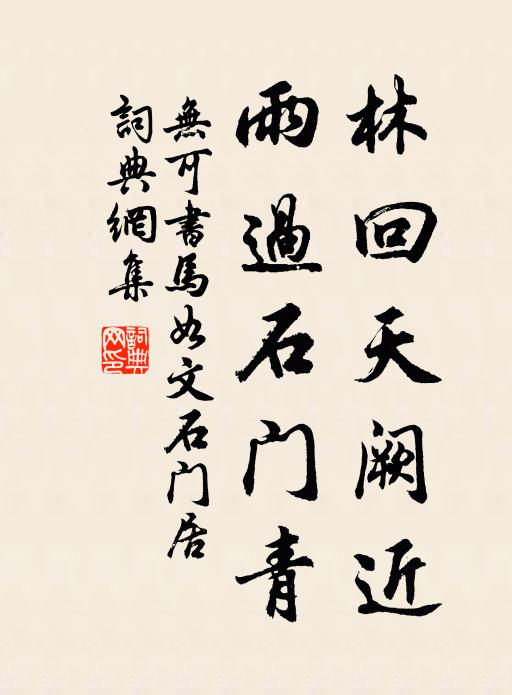 林回天阙近
雨過石门青
無可書馬如文石门居
詞典網集
詞典網印